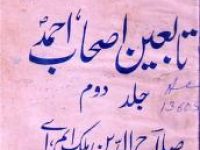 تابعین اصحاب احمدؑ
جلد دوم
صلاح الدین ملک ایم اے